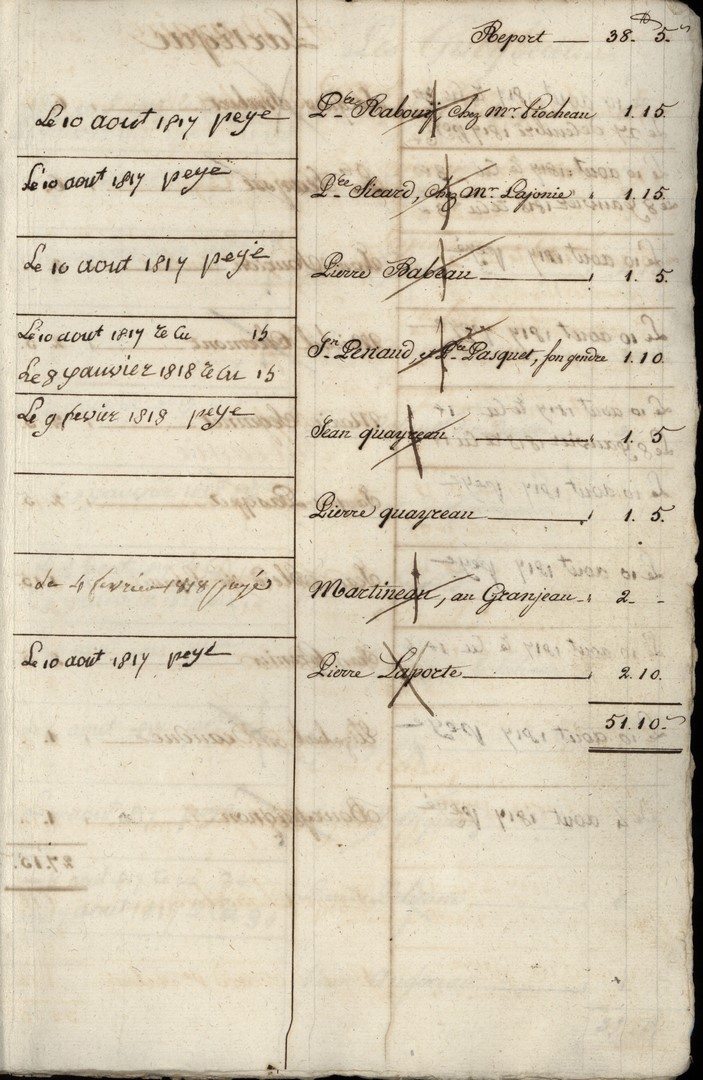 Report 38. 5.
Le 10 aout 1817 peye P.re Rabouy, chez mr. Rocheau 1. 15.
Le 10 aout 1817 peye P.re Sicard, chez mr. Lajonie 1. 15.
Le 10 aout 1817 peye Pierre Babeau 1. 5.
Le 10 aout 1817 re Cu 15
J.n Penaud, et P.re Pasquet, son gendre 1. 10.
Le 8 janvier 1818 re Cu 15
Le 9 fevier 1818 peye
Jean quayreau 1. 5
Pierre quayreau 1. 5.
Le 4 fevrier 1818 payé Martineau, au Granjeau 2. -
Le 10 aout 1817 peyé Pierre Laporte 2. 10.
51. 10.